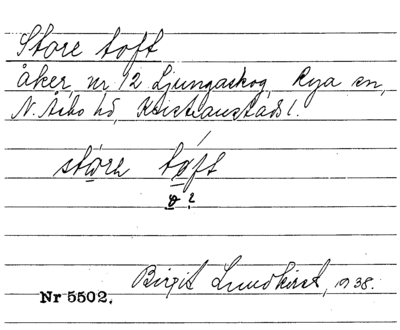 Store toft
åker, nr 12 Ljungaskog, Rya sn,
N. Åsbo hd, Kristianstads l.
störe toft
Birgit Lundkvist, 1938.
Nr 5502.